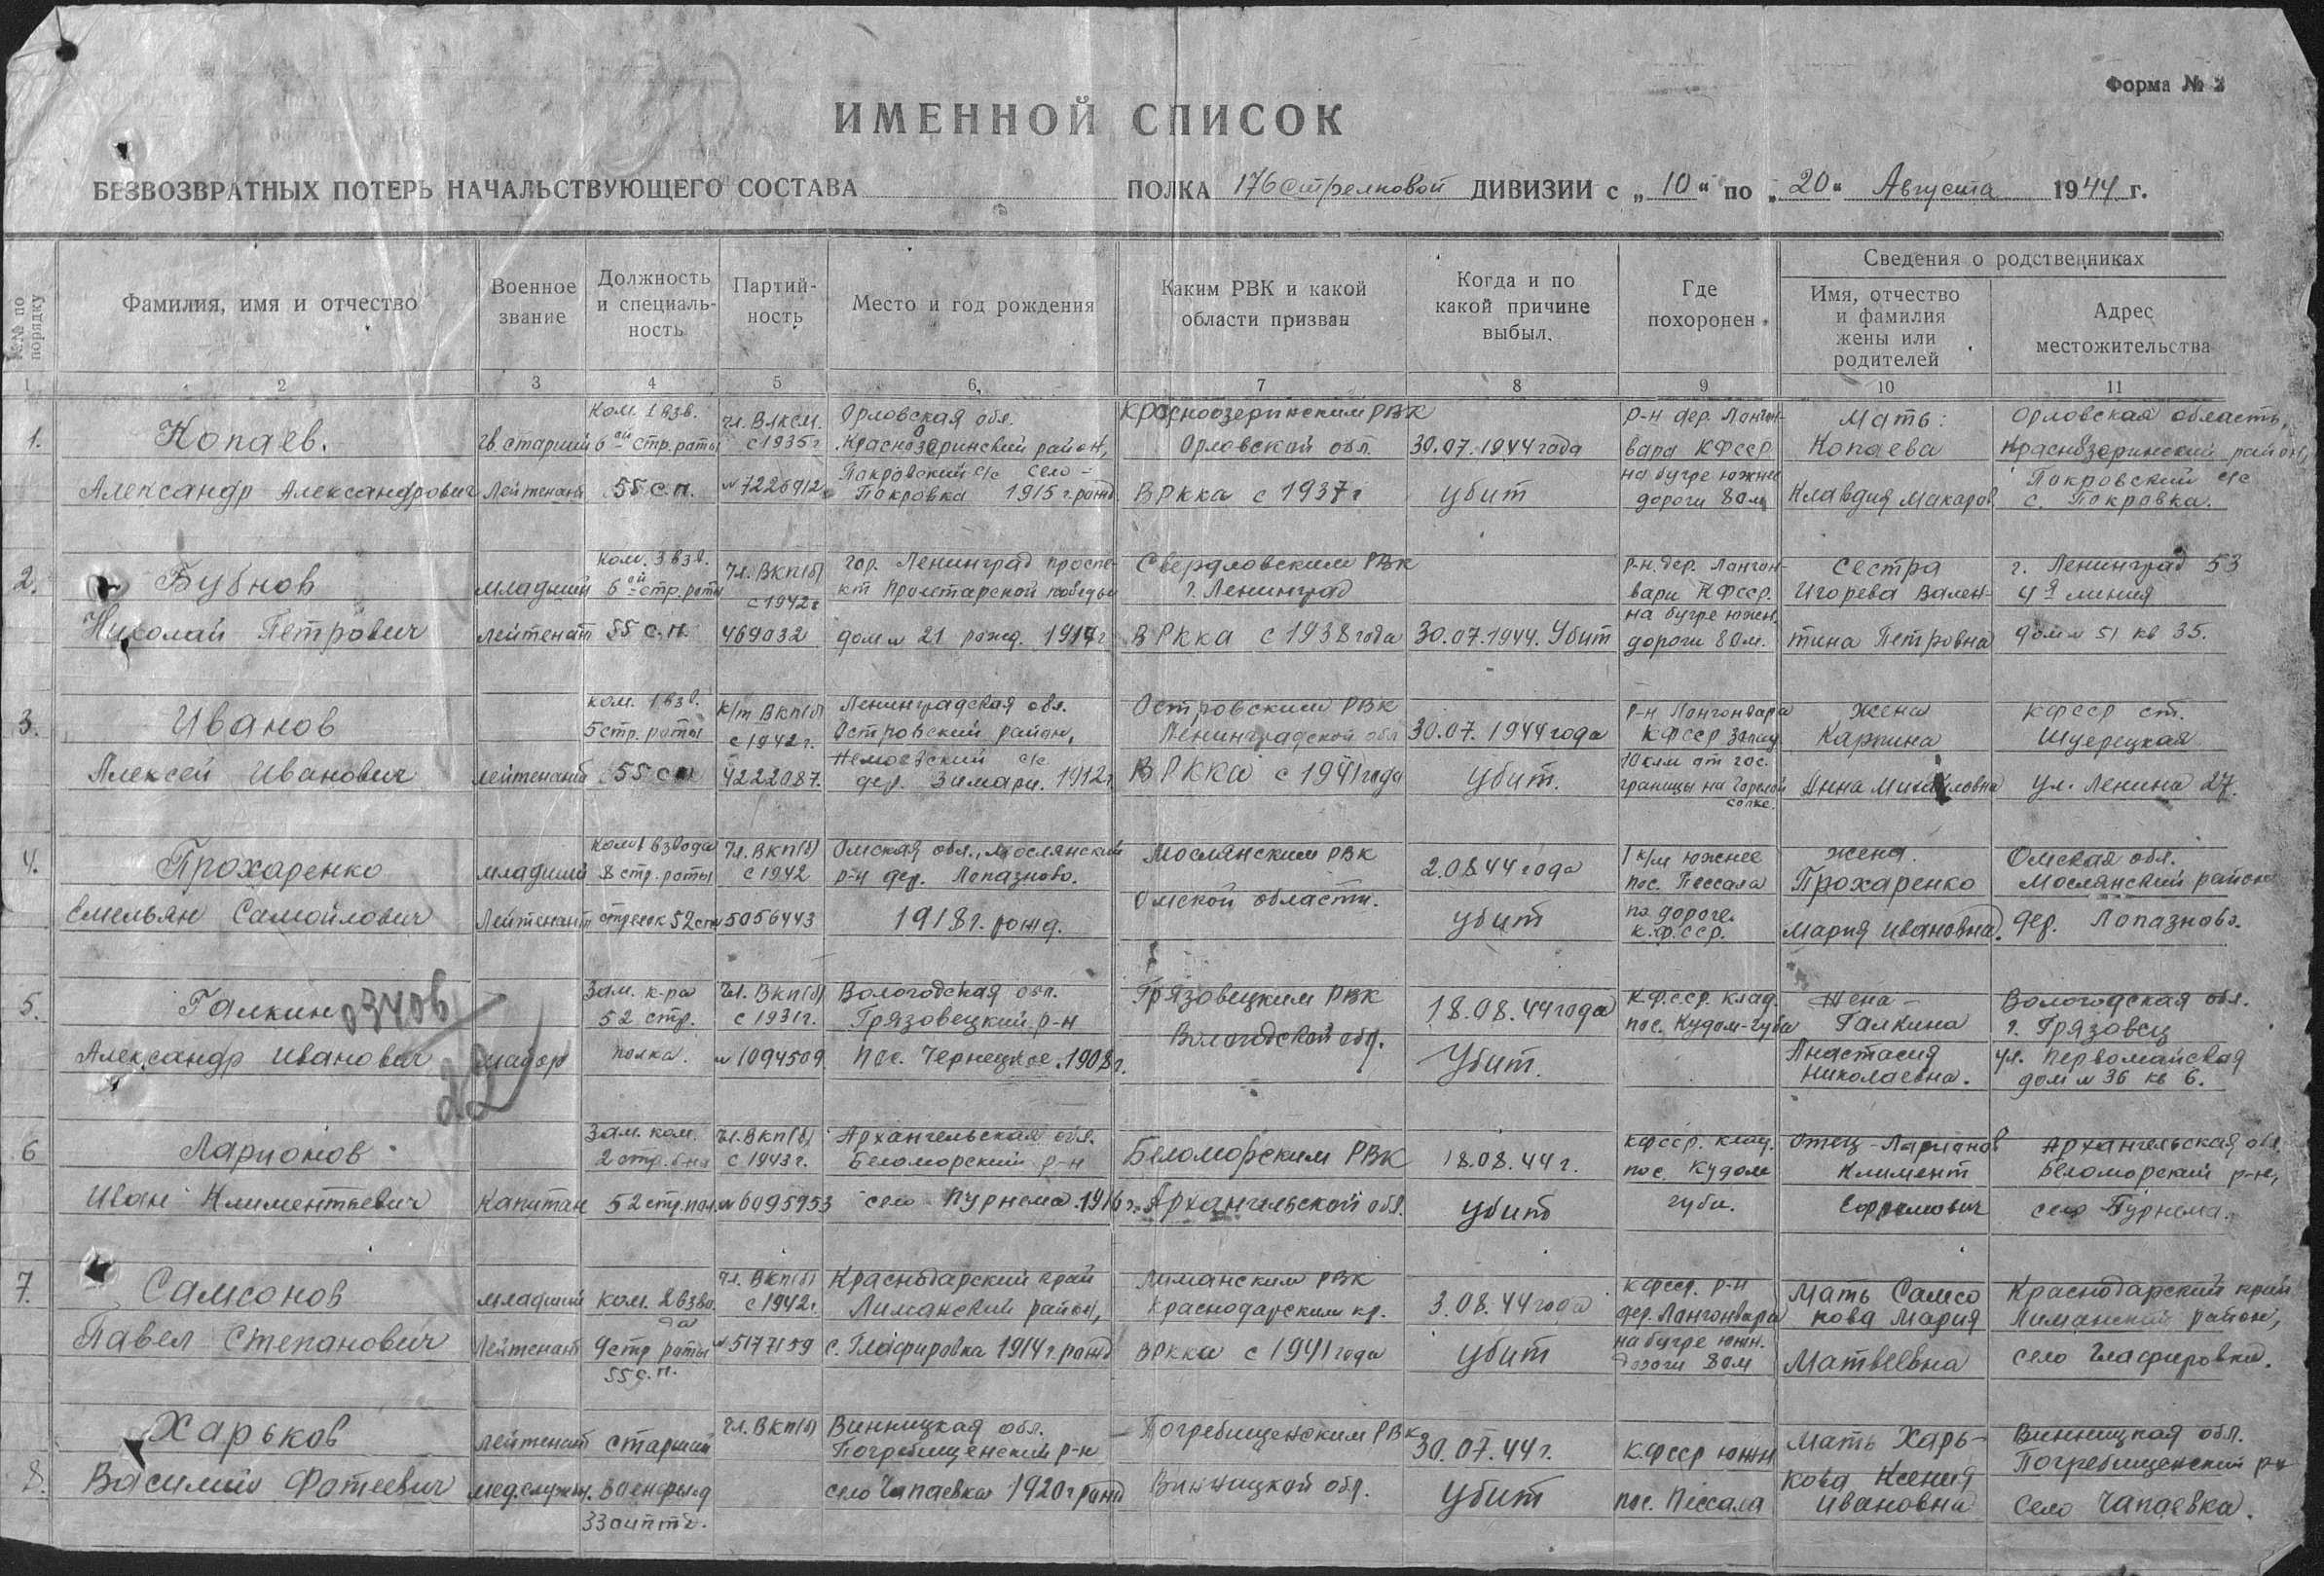 Форма № 2
ИМЕННОЙ СПИСОК
БЕЗВОЗВРАТНЫХ ПОТЕРЬ НАЧАЛЬСТВУЮЩЕГО СОСТАВА ПОЛКА 176 стрелковой ДИВИЗИИ с „10“ по „20“ Августа 1944 г.
№№ по порядку
Фамилия, имя и отчество
Военное звание
Должность и специаль-
ность
Партий-
ность
Место и год рождения
Каким РВК и какой
области призван
Когда и по
какой причине
выбыл.
Где
похоронен
Сведения о родственниках
Имя, отчество
и фамилия
жены или
родителей
Адрес
местожительства
1 2 3 4 5 6 7 8 9 10 11
1.
Копаев.
Александр Александрович
гв. старший
Лейтенант
Ком. 1 взв.
6ой стр. роты
55 с.п.
Чл. ВЛКСМ.
с 1935 г
№ 7226912
Орловская обл.
Краснозоринский район,
Покровский с/с село -
Покровка 1915 г. рожд
Красноозеринским РВК
Орловской обл.
в РККА с 1937 г
30.07.1944 года
убит
р-н дер. Лонгон-
вара КФССР
на бугре южнее
дороги 80 м
Мать:
Копаева
Клавдия Макаров
Орловская область,
Краснозоринский район,
Покровский с/с
с. Покровка.
2.
Бубнов
Николай Петрович
младший
лейтенант
Ком. 3 взв.
6ой стр. роты
55 с.п.
Чл. ВКП(б)
с 1942 г
469032
гор. Ленинград проспе-
кт Пролетарской победы
дом № 21 рожд. 1917 г
Свердловским РВК
г. Ленинград
в РККА с 1938 года
30.07.1944. Убит
р-н. дер. Лонгон-
вари КФССР.
на бугре южн.
дороги 80 м.
Сестра
Игорева Вален-
тина Петровна
г. Ленинград 53
4я линия
дом № 51 кв 35.
3.
Иванов
Алексей Иванович
лейтенант
ком. 1 взв.
5 стр. роты
55 сп
к/т ВКП(б)
с 1942 г.
4222087.
Ленинградская обл.
Островский район,
с/с
дер. Зимари. 1912 г
Островским РВК
Ленинградской обл
в РККА с 1941 года
30.07.1944 года
убит.
р-н Лонгонвара
КФССР запад.
10 клм от гос.
границы на Горелой
сопке.
Жена
Карпина
Анна Михайловна
КФССР ст.
Шуерецкая
ул. Ленина 27.
4.
Прохаренко
Емельян Самойлович
младший
Лейтенант
Ком 1 взвода
8 стр. роты
стрелок 52 сп
Чл. ВКП(б)
с 1942
5056443
Омская обл., Мослянский
р-н дер. Лопазново.
1918 г. рожд.
Мослянским РВК
Омской области.
2.08.44 года
убит
1 к/м южнее
пос. Пессала
по дороге.
К.Ф.ССР.
Жена.
Прохаренко
Мария Ивановна.
Омская обл.
Мослянский район
дер. Лопазново.
5.
Галкин
03406
22
Александр Иванович
майор
Зам. к-ра
52 стр.
полка.
Чл. ВКП(б)
с 1931 г.
№ 1094509
Вологодская обл.
Грязовецкий р-н
пос. Чернецкое. 1908 г.
Грязовецким РВК
Вологодской обл.
18.08.44 года
Убит.
КФССР. клад.
пос. Кудом-губа
Жена -
Галкина
Анастасия
Николаевна.
Вологодская обл.
г. Грязовец
ул. Первомайская
дом № 36 кв 6.
6
Ларионов
Иван Климентьевич
Капитан
Зам. ком.
2 стр. б-на
52 стр. пол.
Чл. ВКП(б)
с 1943 г.
№ 6095953
Архангельская обл.
Беломорский р-н
село Пурнема. 1916 г.
Беломорским РВК
Архангельской обл.
18.08.44 г.
убит
КФССР. клад.
пос. Кудом
губа.
Отец - Ларионов
Климент
Архангельская обл.
Беломорский р-н,
село Пурнема.
7.
Самсонов
Павел Степанович
младший
Лейтенант
ком. 2 взво
да
9 стр роты
55 с.п.
Чл. ВКП(б)
с 1942 г.
№ 5177159
Краснодарский край
Лиманский район,
с. Глафировка 1914 г. рожд
Лиманским РВК
Краснодарским кр.
в РККА с 1941 года
3.08.44 года
убит
КФССР. р-н
дер. Лонгонвара
на бугре южн.
дороги 80 м
Мать Самсо
нова Мария
Матвеевна
Краснодарский край
Лиманский район,
село Глафировка.
8.
Харьков
Василий Фотеевич
лейтенант
мед. службы.
старший
военфельд
33 оиптд.
Чл. ВКП(б)
Винницкая обл.
Погребищенским р-н
село Чапаевка 1920 г рожд
Погребищенским РВК
Винницкой обл.
30.07.44 г.
Убит
КФССР южн
пос. Пессала
Мать Харь-
кова Ксения
Ивановна
Винницкая обл.
Погребищенский р-н
село Чапаевка.